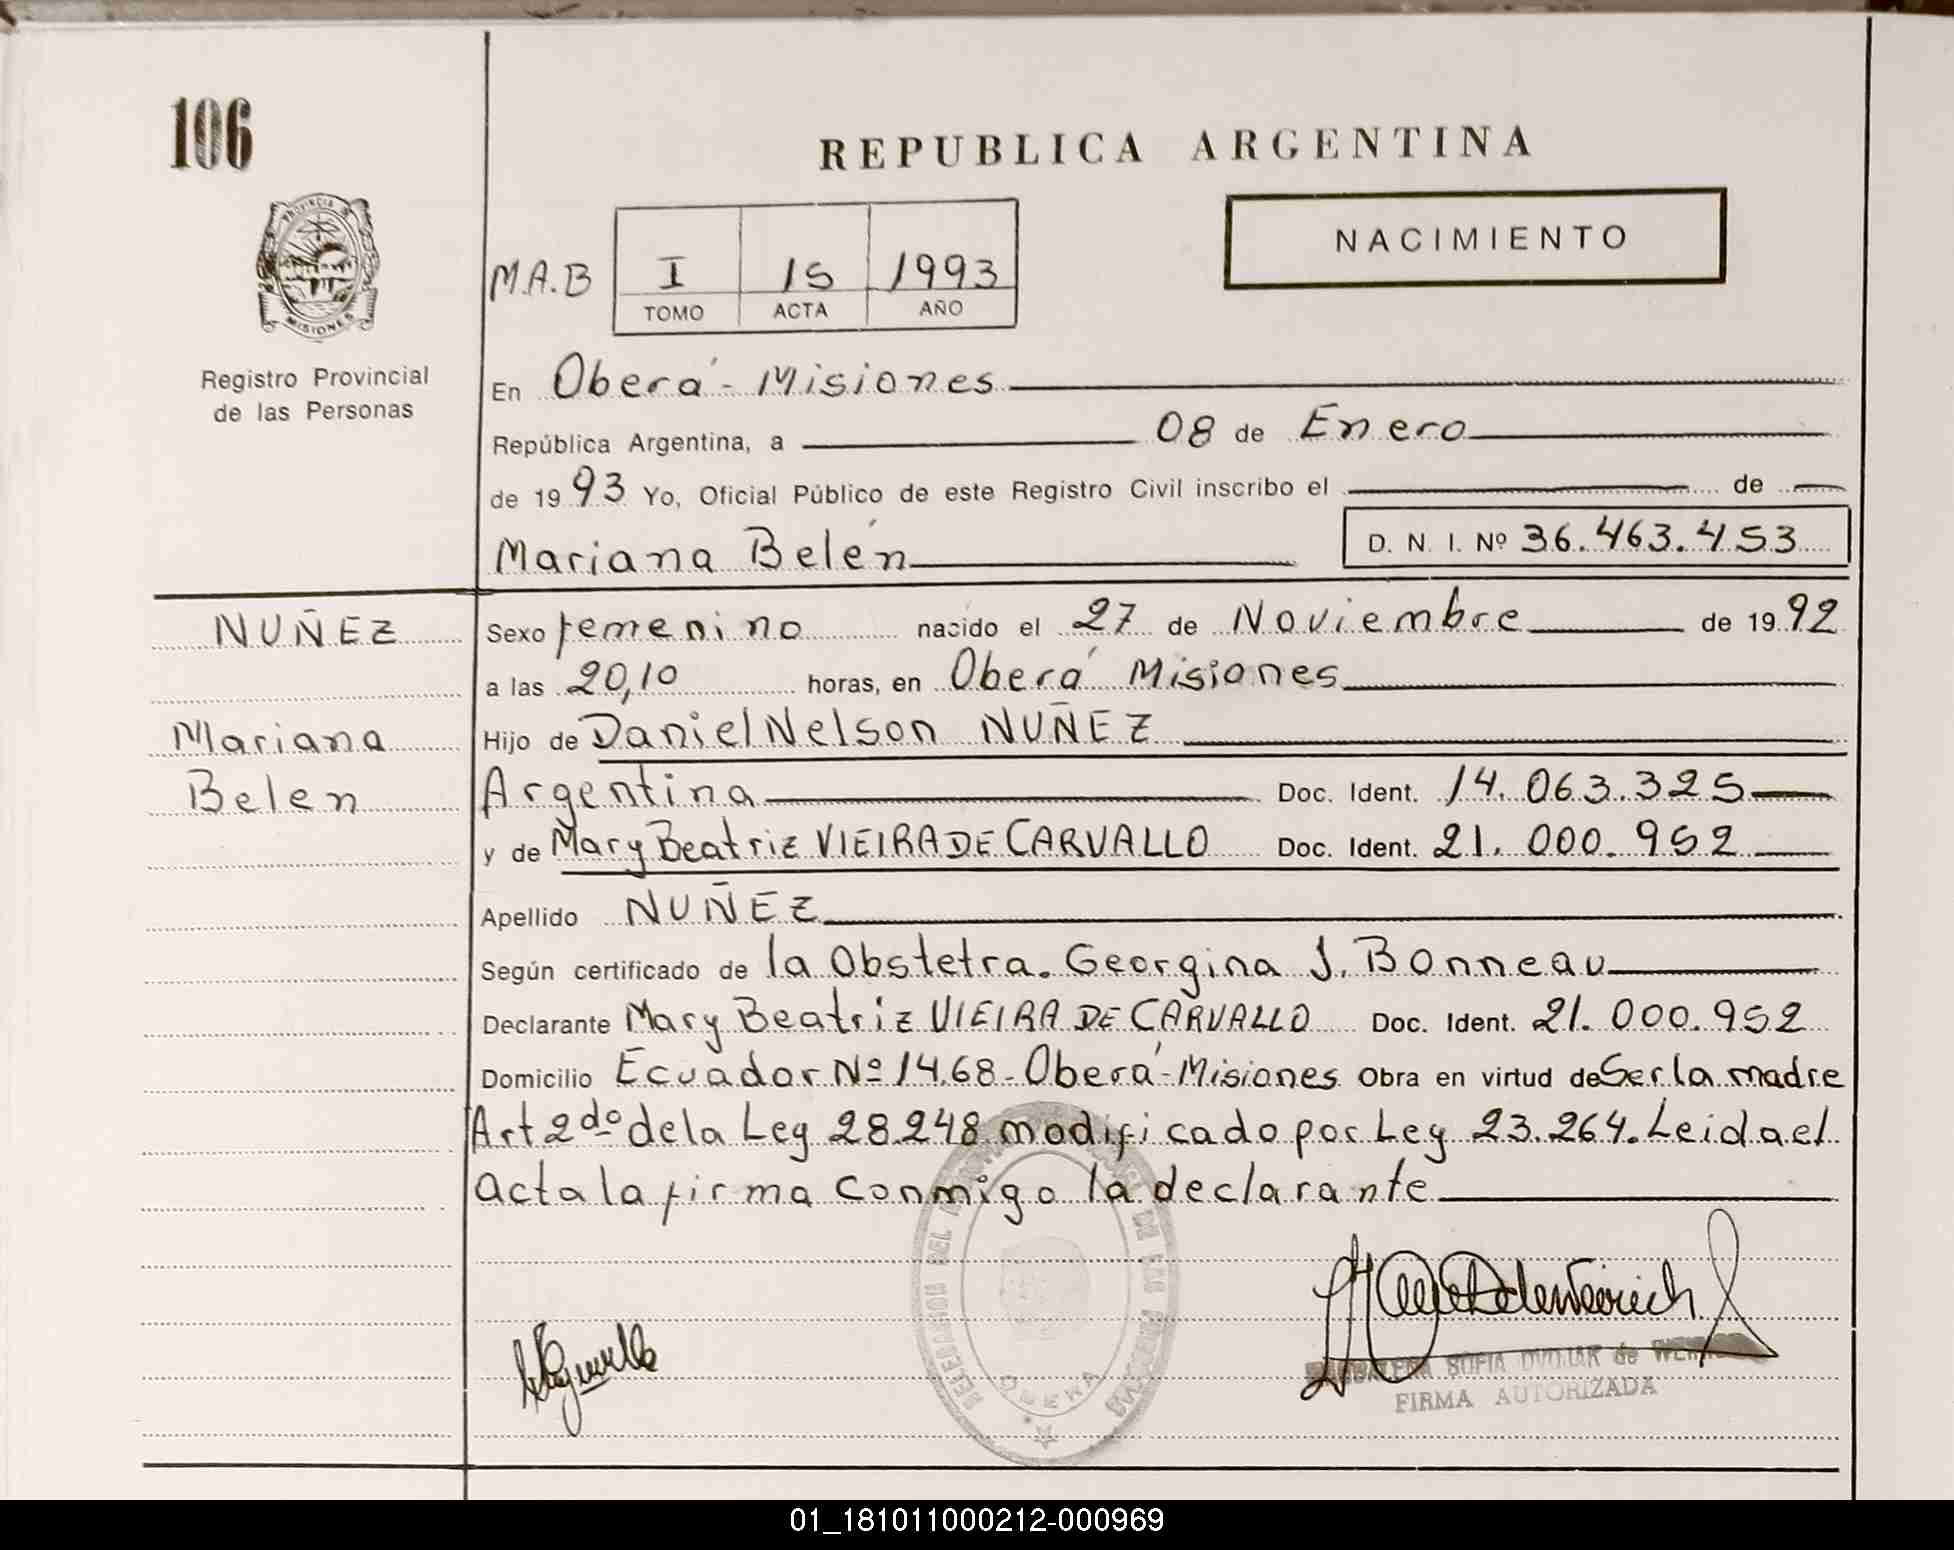 106
REPUBLICA ARGENTINA
PROVINCIA D
MISIONES
NACIMIENTO
M.A.B I 15 1993
TOMO ACTA AÑO
Registro Provincial
de las Personas
En Oberá - Misiones
República Argentina, a 08 de Enero
de 1993 Yo, Oficial Público de este Registro Civil inscribo el de
Mariana Belén D. N. I. Nº 36.463.453
NUÑEZ
Mariana
Belen
Sexo femenino nacido el 27 de Noviembre de 1992
a las 20,10 horas, en Oberá Misiones
Hijo de Daniel Nelson NUÑEZ
Argentina Doc. Ident. 14.063.325
y de Mary Beatriz VIEIRA DE CARVALLO Doc. Ident. 21.000.952
Apellido NUÑEZ
Según certificado de la Obstetra. Georgina J. Bonneau
Declarante Mary Beatriz VIEIRA DE CARVALLO Doc. Ident. 21.000.952
Domicilio Ecuador Nº 1468 - Oberá - Misiones Obra en virtud de Ser la madre
Art 2do de la Ley 28.248 modificado por Ley 23.264. Leida el
acta la firma conmigo la declarante
SOFIA DVOJAK de
FIRMA AUTORIZADA
01_181011000212-000969